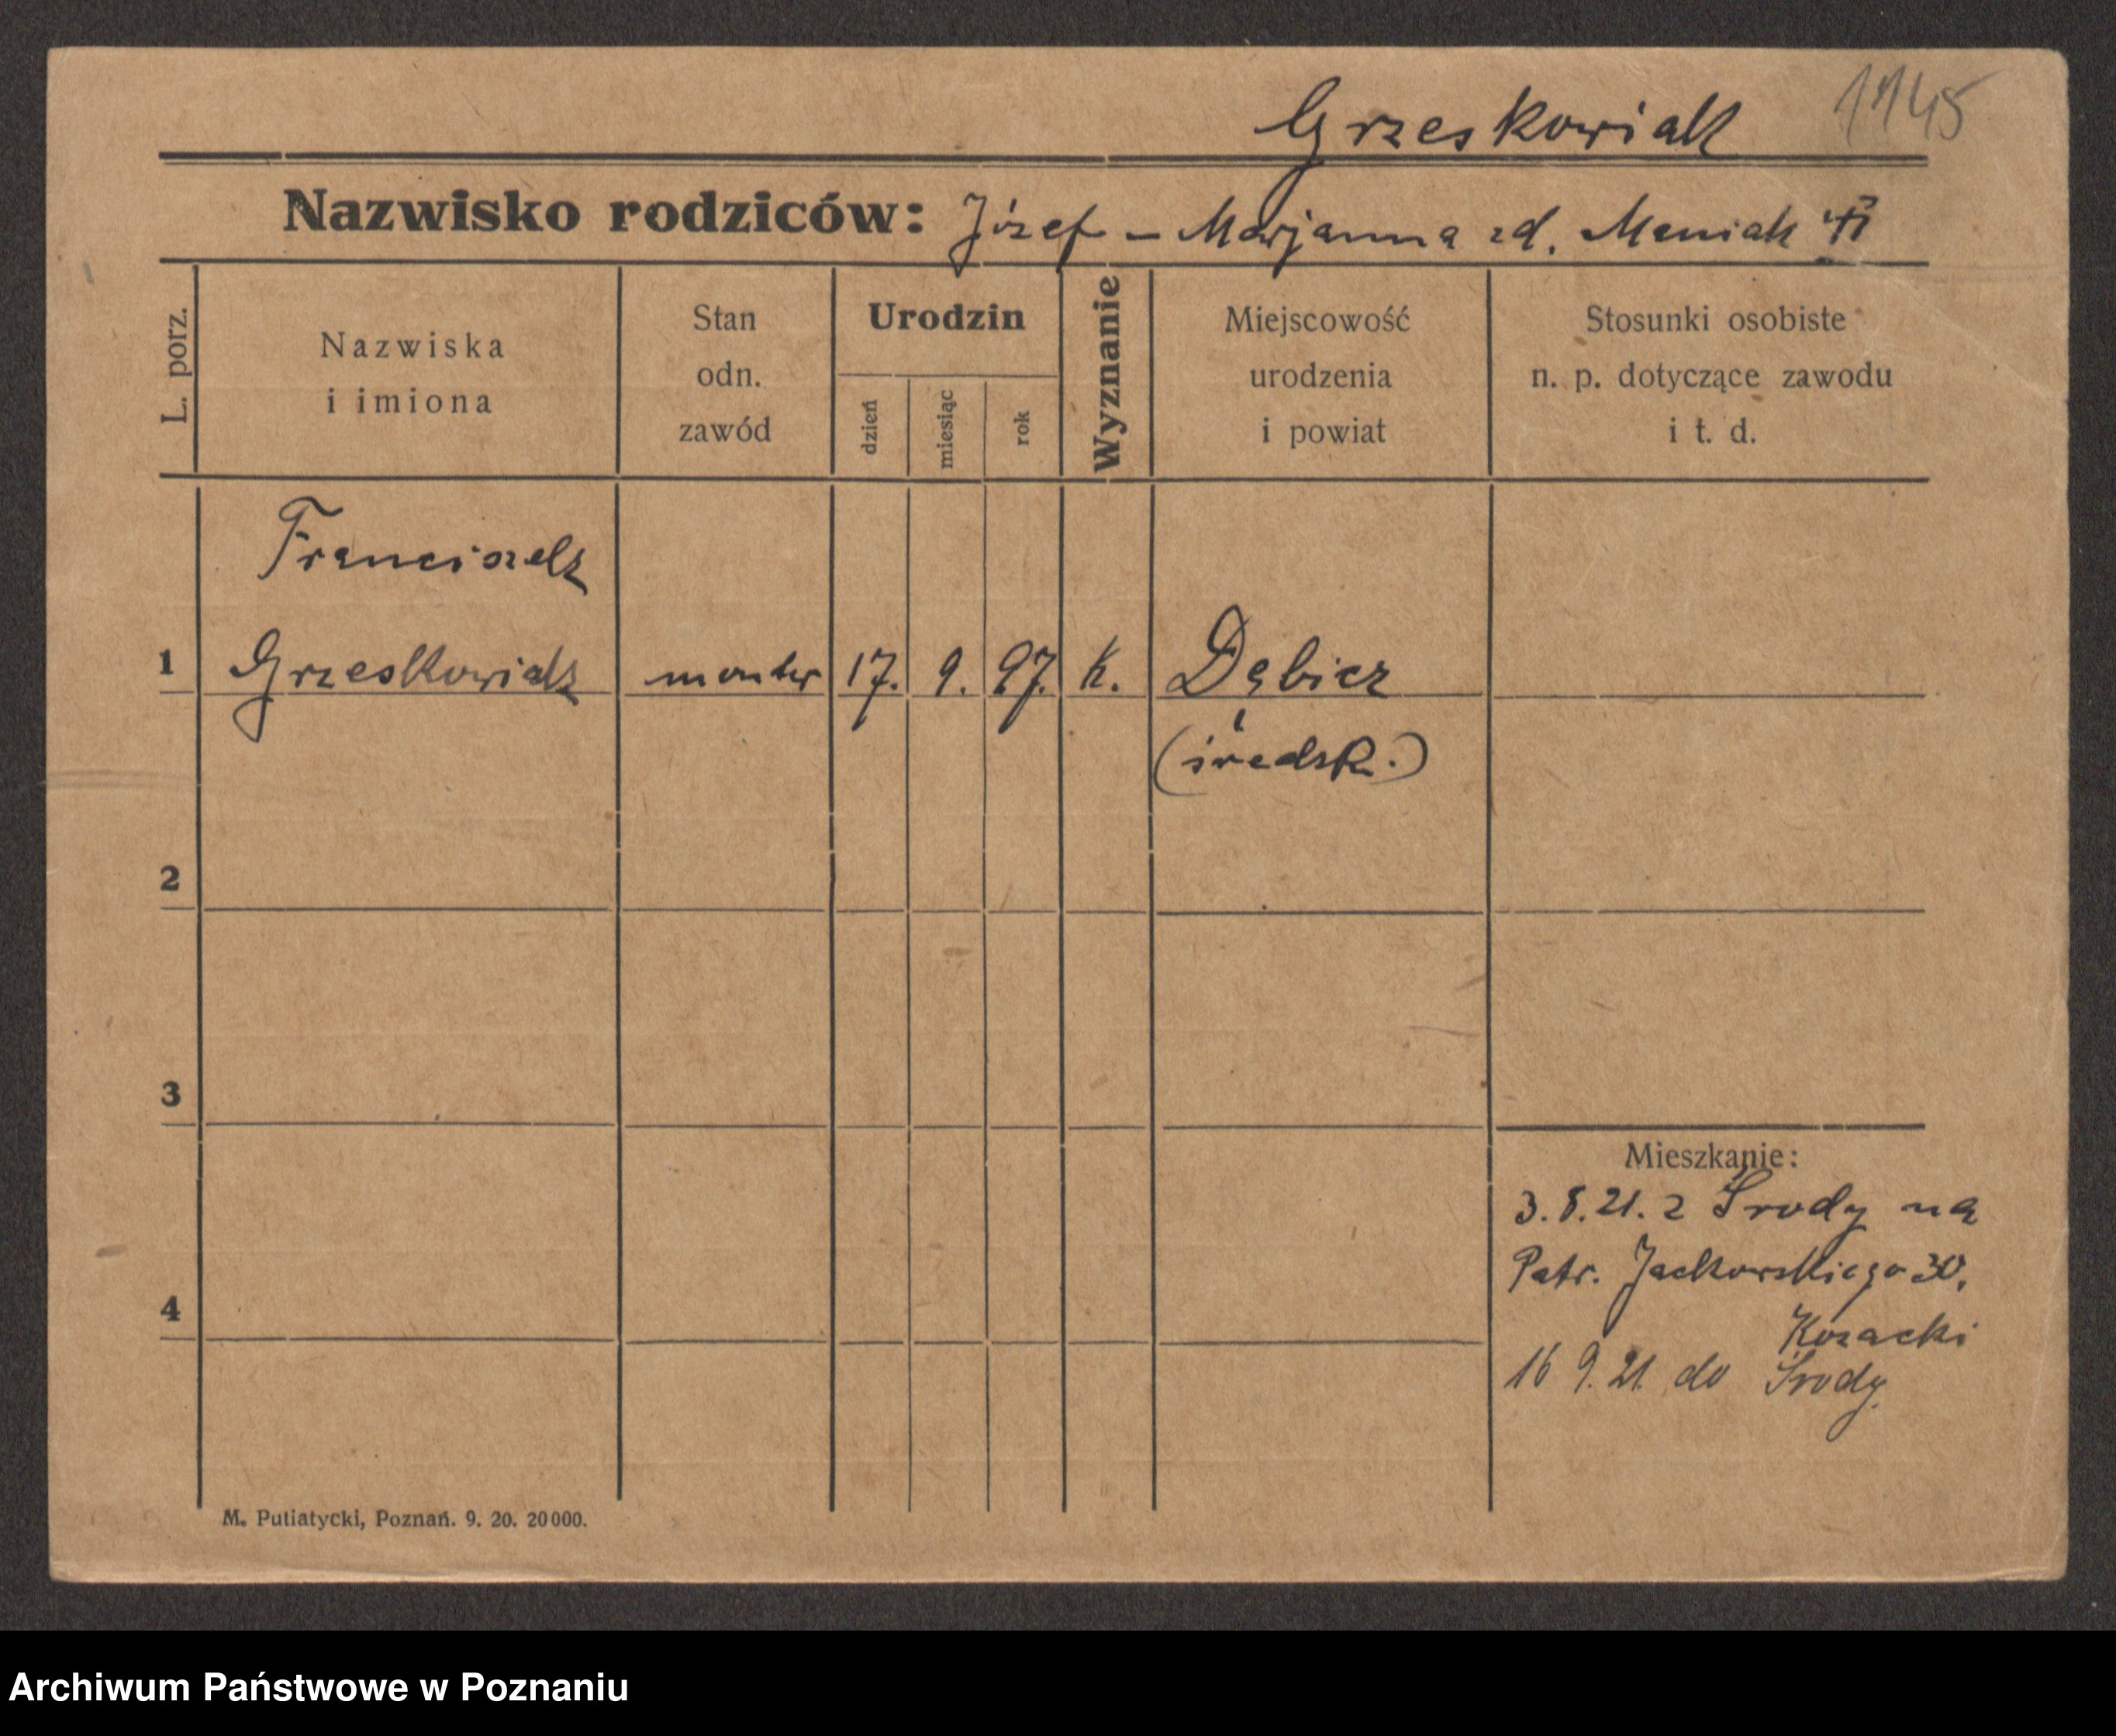 1145
Grzeskowiak
Nazwisko rodziców: Józef – Marjanna zd. Maniak
L. porz.
Nazwiska
i imiona
Stan
odn.
zawód
Urodzin
dzień
miesiąc
rok
Wyznanie
Miejscowość
urodzenia
i powiat
Stosunki osobiste
n. p. dotyczące zawodu
i t. d.
Franciszek
1 Grzeskowiak monter 17. 9. 97. k. Dębicz
(średsk.)
2
3
Mieszkanie:
3.8.21. z Środy na
Patr. Jackowskiego 30.
4
Kozacki
16 9. 21. do Środy.
M. Putiatycki, Poznań. 9. 20. 20000.
Archiwum Państwowe w Poznaniu